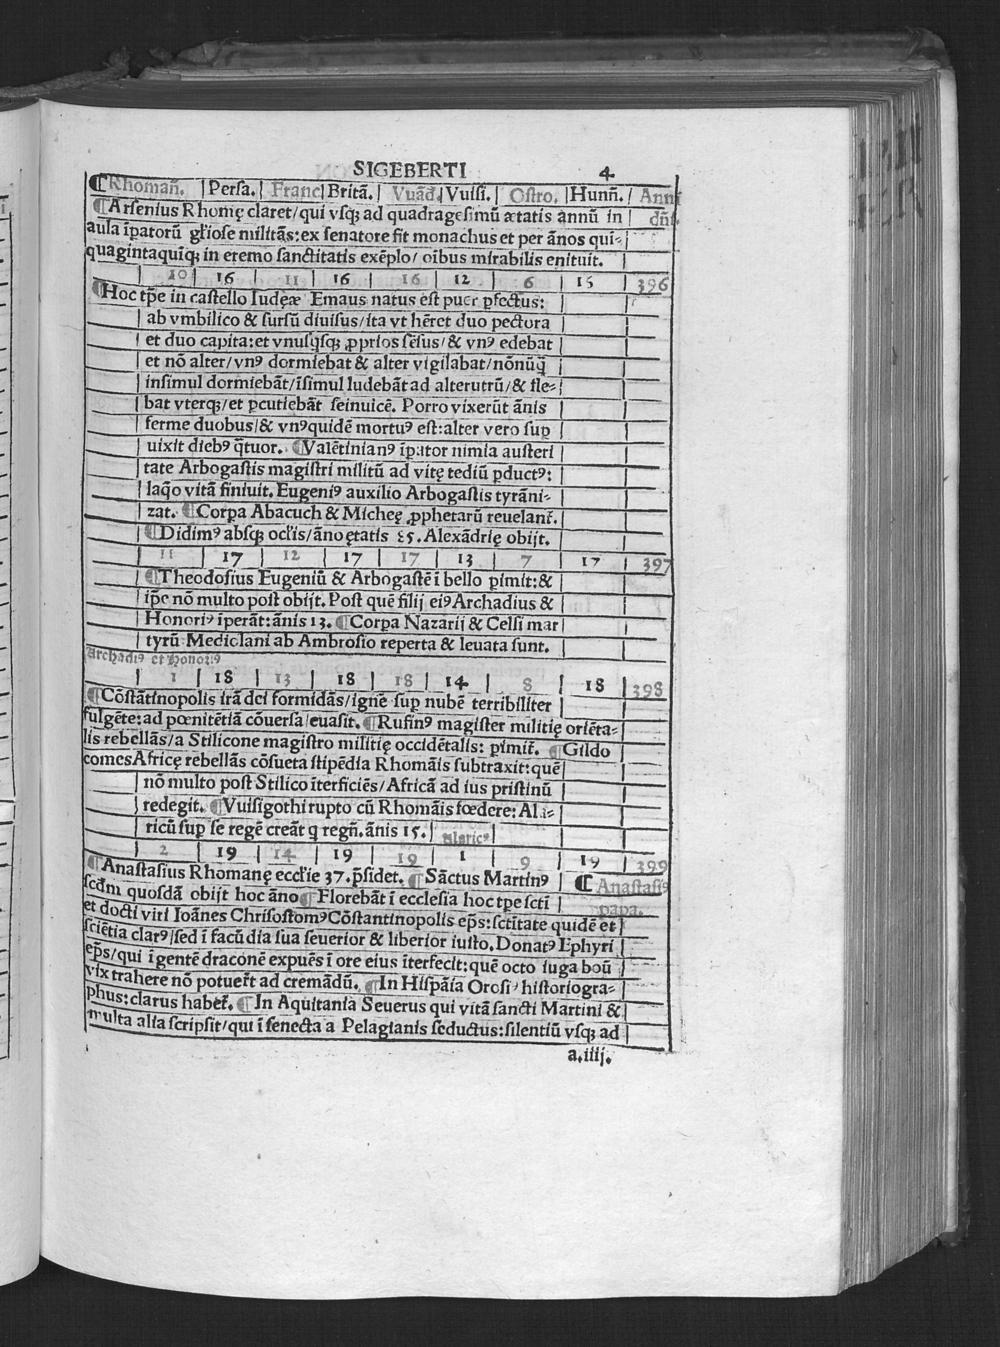 SIGEBERTI 4
¶Rhomañ. |Persa.| Franc|Britā.| Vuād|Vuisi.| Ostro.|Hunñ.| Anni
¶Arsenius Rhomę claret/qui vsqꝫ ad quadragesimū ætatis annū in | dñi.
aula īpatorū gl'iose militās:ex senatore fit monachus et per ānos qui-
quagintaquīqꝫ in eremo sanctitatis exēplo/ oībus mirabilis enituit.
10 | 16 | 11 | 16 | 16 | 12 | 6 | 15 | 396
¶Hoc tp̄e in castello Iudęæ Emaus natus est puer ꝑfectus:
ab vmbilico & sursū diuisus/ita vt hēret duo pectora
et duo capita:et vnusq̄sqꝫ ꝓprios sēsus/& vnꝰ edebat
et nō alter/vnꝰ dormiebat & alter vigilabat/nōnūq̄
insimul dormiebāt/īsimul ludebāt ad alterutrū/& fle-
bat vterqꝫ/et ꝑcutiebāt seinuicē. Porro vixerūt ānis
ferme duobus/& vnꝰquidē mortuꝰ est:alter vero suꝑ
uixit diebꝰ q̄tuor. ¶Valētinianꝰ īpator nimia austeri
tate Arbogastis magistri militū ad vitę tediū ꝑductꝰ:
laq̄o vitā finiuit. Eugeniꝰ auxilio Arbogastis tyrāni-
zat. ¶Corꝑa Abacuch & Micheę ꝓphetarū reuelant̄.
¶Didimꝰ absqꝫ ocl'is/āno ętatis 85. Alexādrię obijt.
11 | 17 | 12 | 17 | 17 | 13 | 7 | 17 | 397
¶Theodosius Eugeniū & Arbogastē ī bello ꝑimit:&
ip̄e nō multo post obijt. Post quē filij eiꝰ Archadius &
Honoriꝰ īperāt:ānis 13. ¶Corꝑa Nazarij & Celsi mar
tyrū Mediolani ab Ambrosio reperta & leuata sunt.
Archadiꝰ et Honoriꝰ
1 | 18 | 13 | 18 | 18 | 14 | 8 | 18 | 398
¶Cōstātinopolis irā dei formidās/ignē suꝑ nubē terribiliter
fulgēte:ad pœnitētiā cōuersa/euasit. ¶Rufinꝰ magister militię oriēta-
lis rebellās/a Stilicone magistro militię occidētalis: ꝑimit̄. ¶Gildo
comes Africę rebellās cōsueta stipēdia Rhomāis subtraxit:quē
nō multo post Stilico īterficiēs/Africā ad ius pristinū
redegit. ¶Vuisigothi rupto cū Rhomāis fœdere: Ala-
ricū suꝑ se regē creāt q̄ regñ. ānis 15. | Alaricꝰ
2 | 19 | 14 | 19 | 19 | 1 | 9 | 19 | 399
¶Anastasius Rhomanę eccl'ie 37. p̄sidet. ¶Sāctus Martinꝰ ¶ Anastasiꝰ
scd̄m quosdā obijt hoc āno ¶Florebāt ī ecclesia hoc tp̄e sctī papa.
et docti viri Ioānes Chrisostomꝰ Cōstantinopolis ep̄s:sctītate quidē et
sciētia clarꝰ/sed ī facūdia sua seuerior & liberior iusto. Donatꝰ Ephyri
ep̄s/qui īgentē draconē expuēs ī ore eius īterfecit:quē octo iuga boū
vix trahere nō potuer̄t ad cremādū. ¶In Hispāia Orosiꝰ historiogra-
phus:clarus habet̄. ¶In Aquitania Seuerus qui vitā sancti Martini &
multa alia scripsit/qui ī senecta a Pelagianis seductus:silentiū vsqꝫ ad
a.iiij.